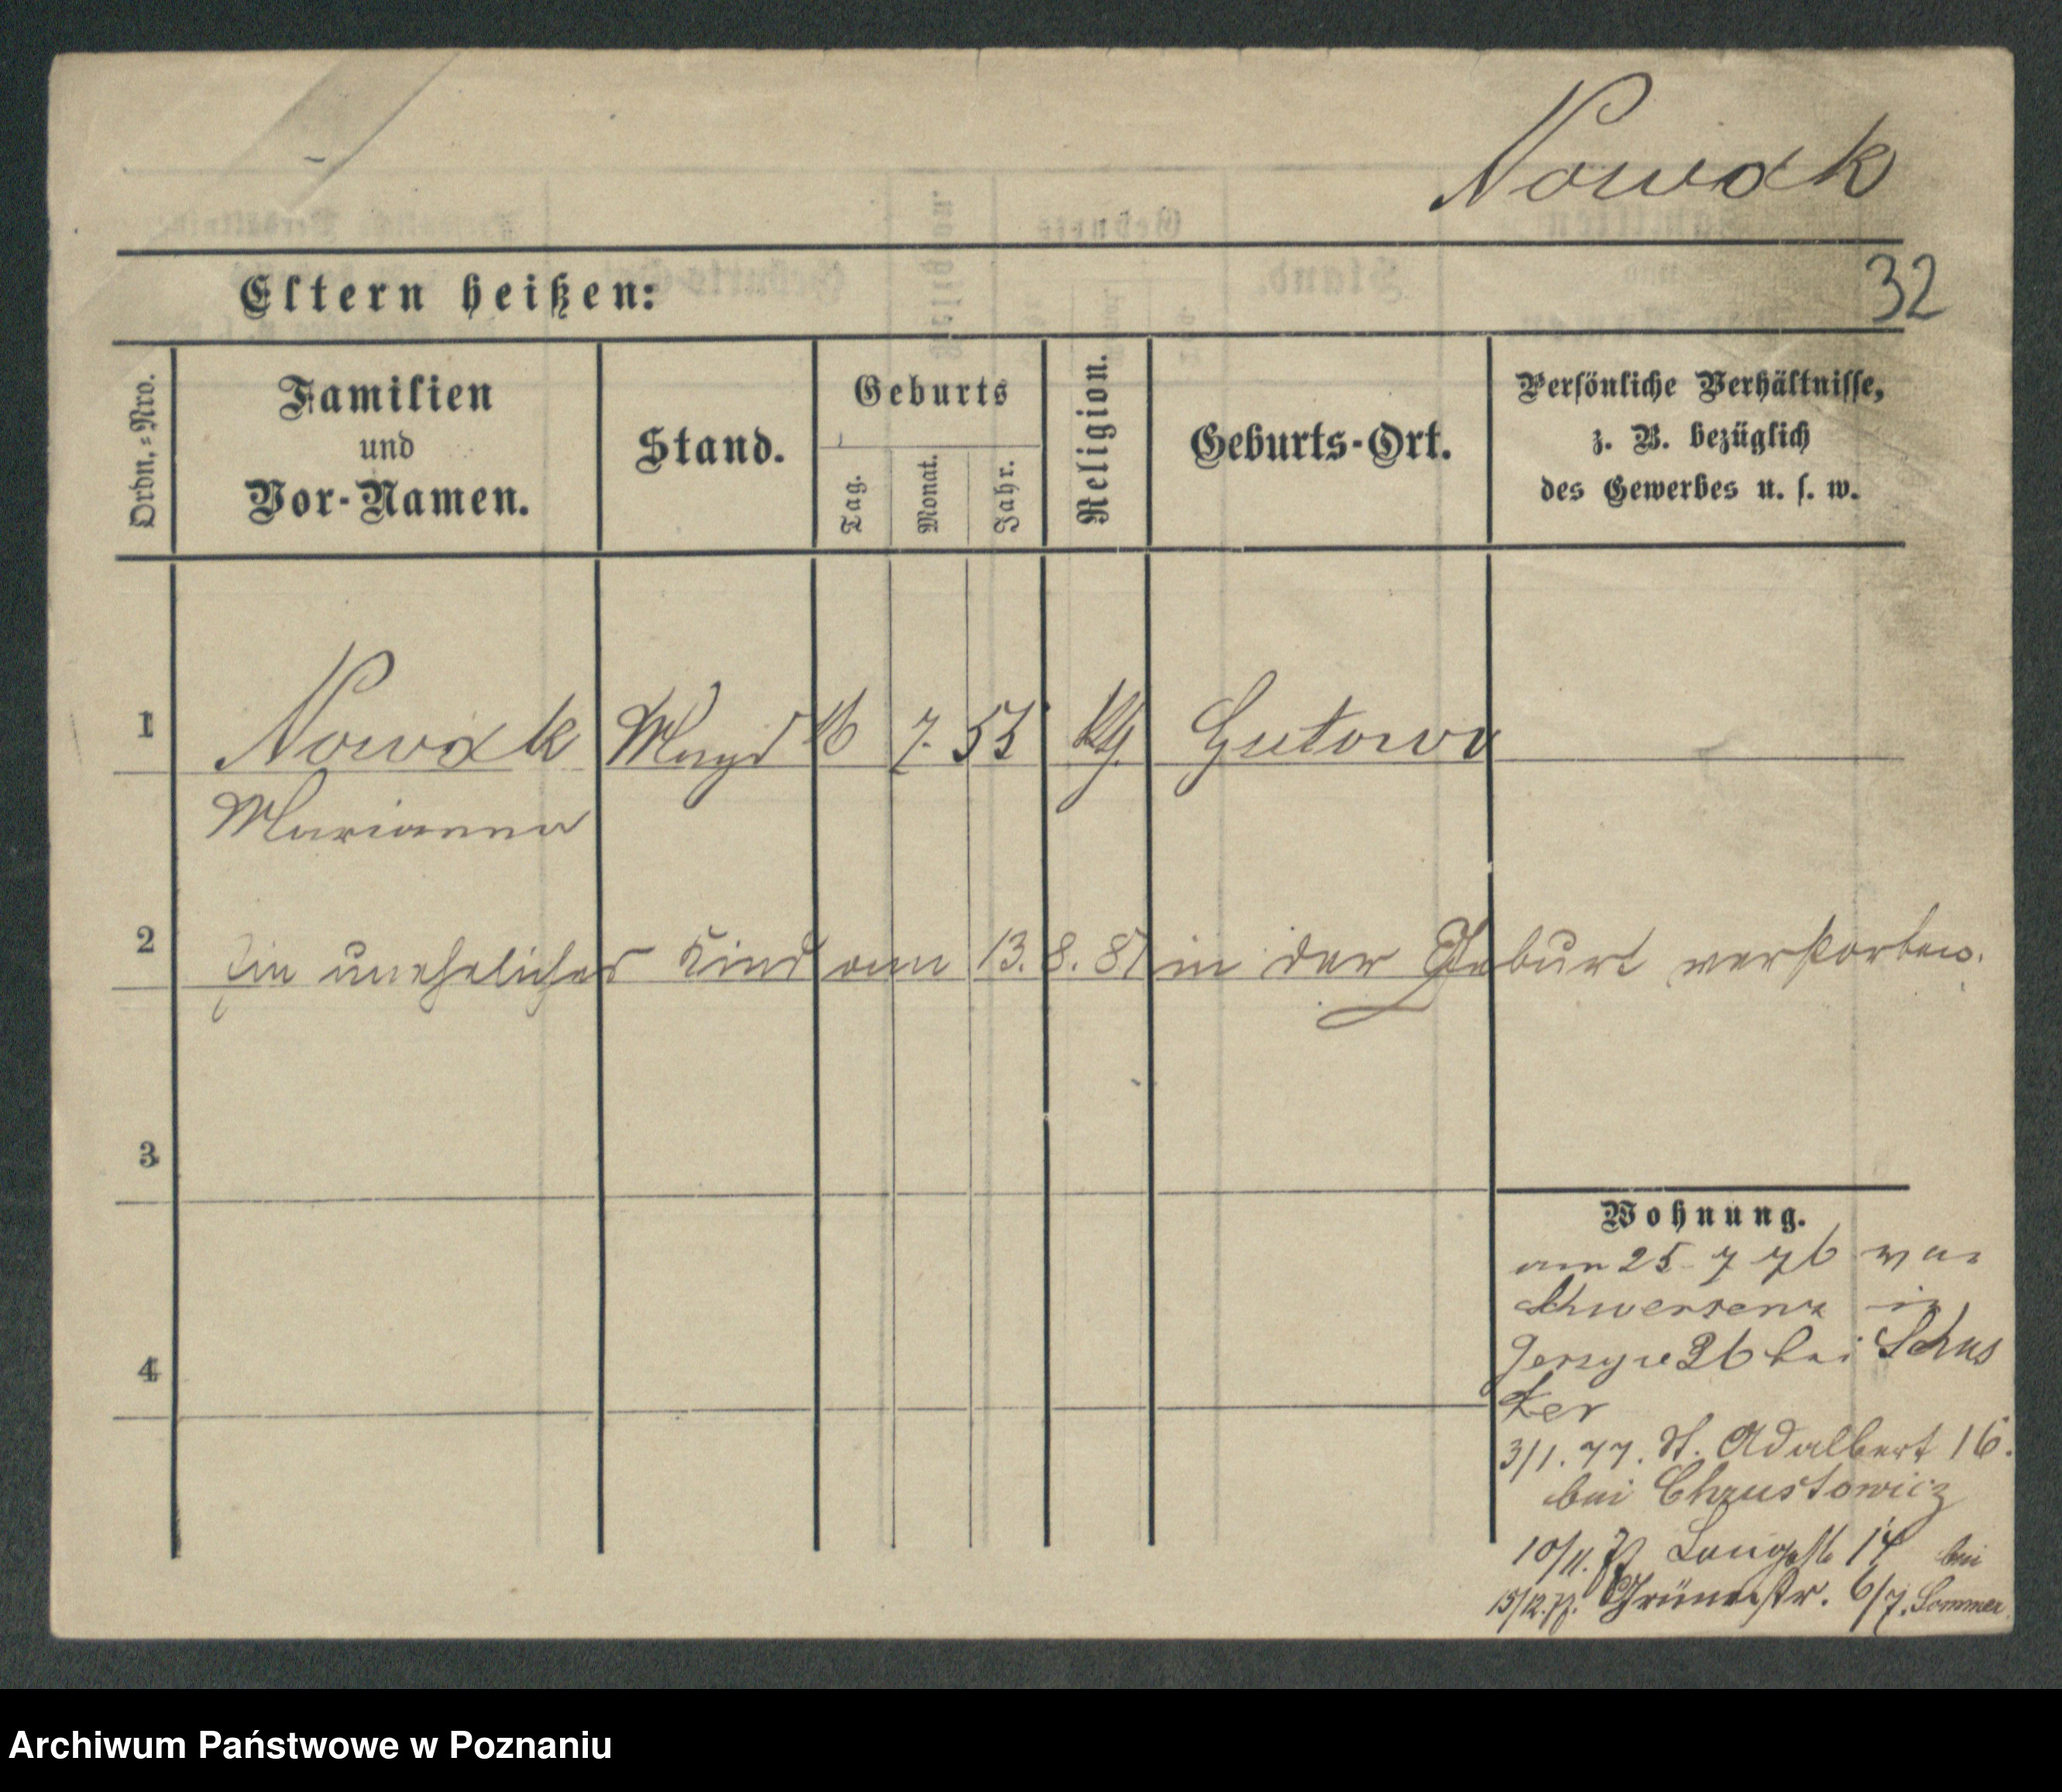 Nowak
32
Eltern heißen:
Ordn.=Nro.
Familien
und
Vor-Namen.
Stand.
Geburts
Tag.
Monat.
Jahr.
Religion.
Geburts-Ort.
Persönliche Verhältnisse,
z. B. bezüglich
des Gewerbes u. s. w.
1 Nowak Magd 16 7. 55 kg. Gutowo
Marianna
2 Ein uneheliches Kind am 13. 8. 81 in der Geburt verstorben.
3
4
Wohnung.
am 25 7 76 von
Schwersenz in
Jerzyce 36 bei Schus
ter
3/1. 77. St. Adalbert 16.
bei Chrustowicz
10/11. 77 Langestr 14 bei
15/12. 77. Grünestr. 6/7. Sommer
Archiwum Państwowe w Poznaniu